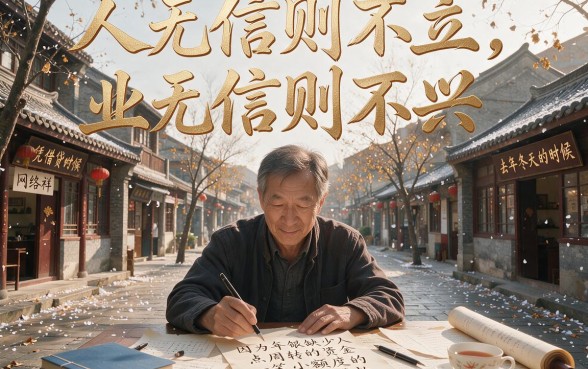 人无信则不立，
业无信则不兴
凭借贷时候
网络祥
去年冬天的时候
因为年银缺少人
点周转的资金
小额度的